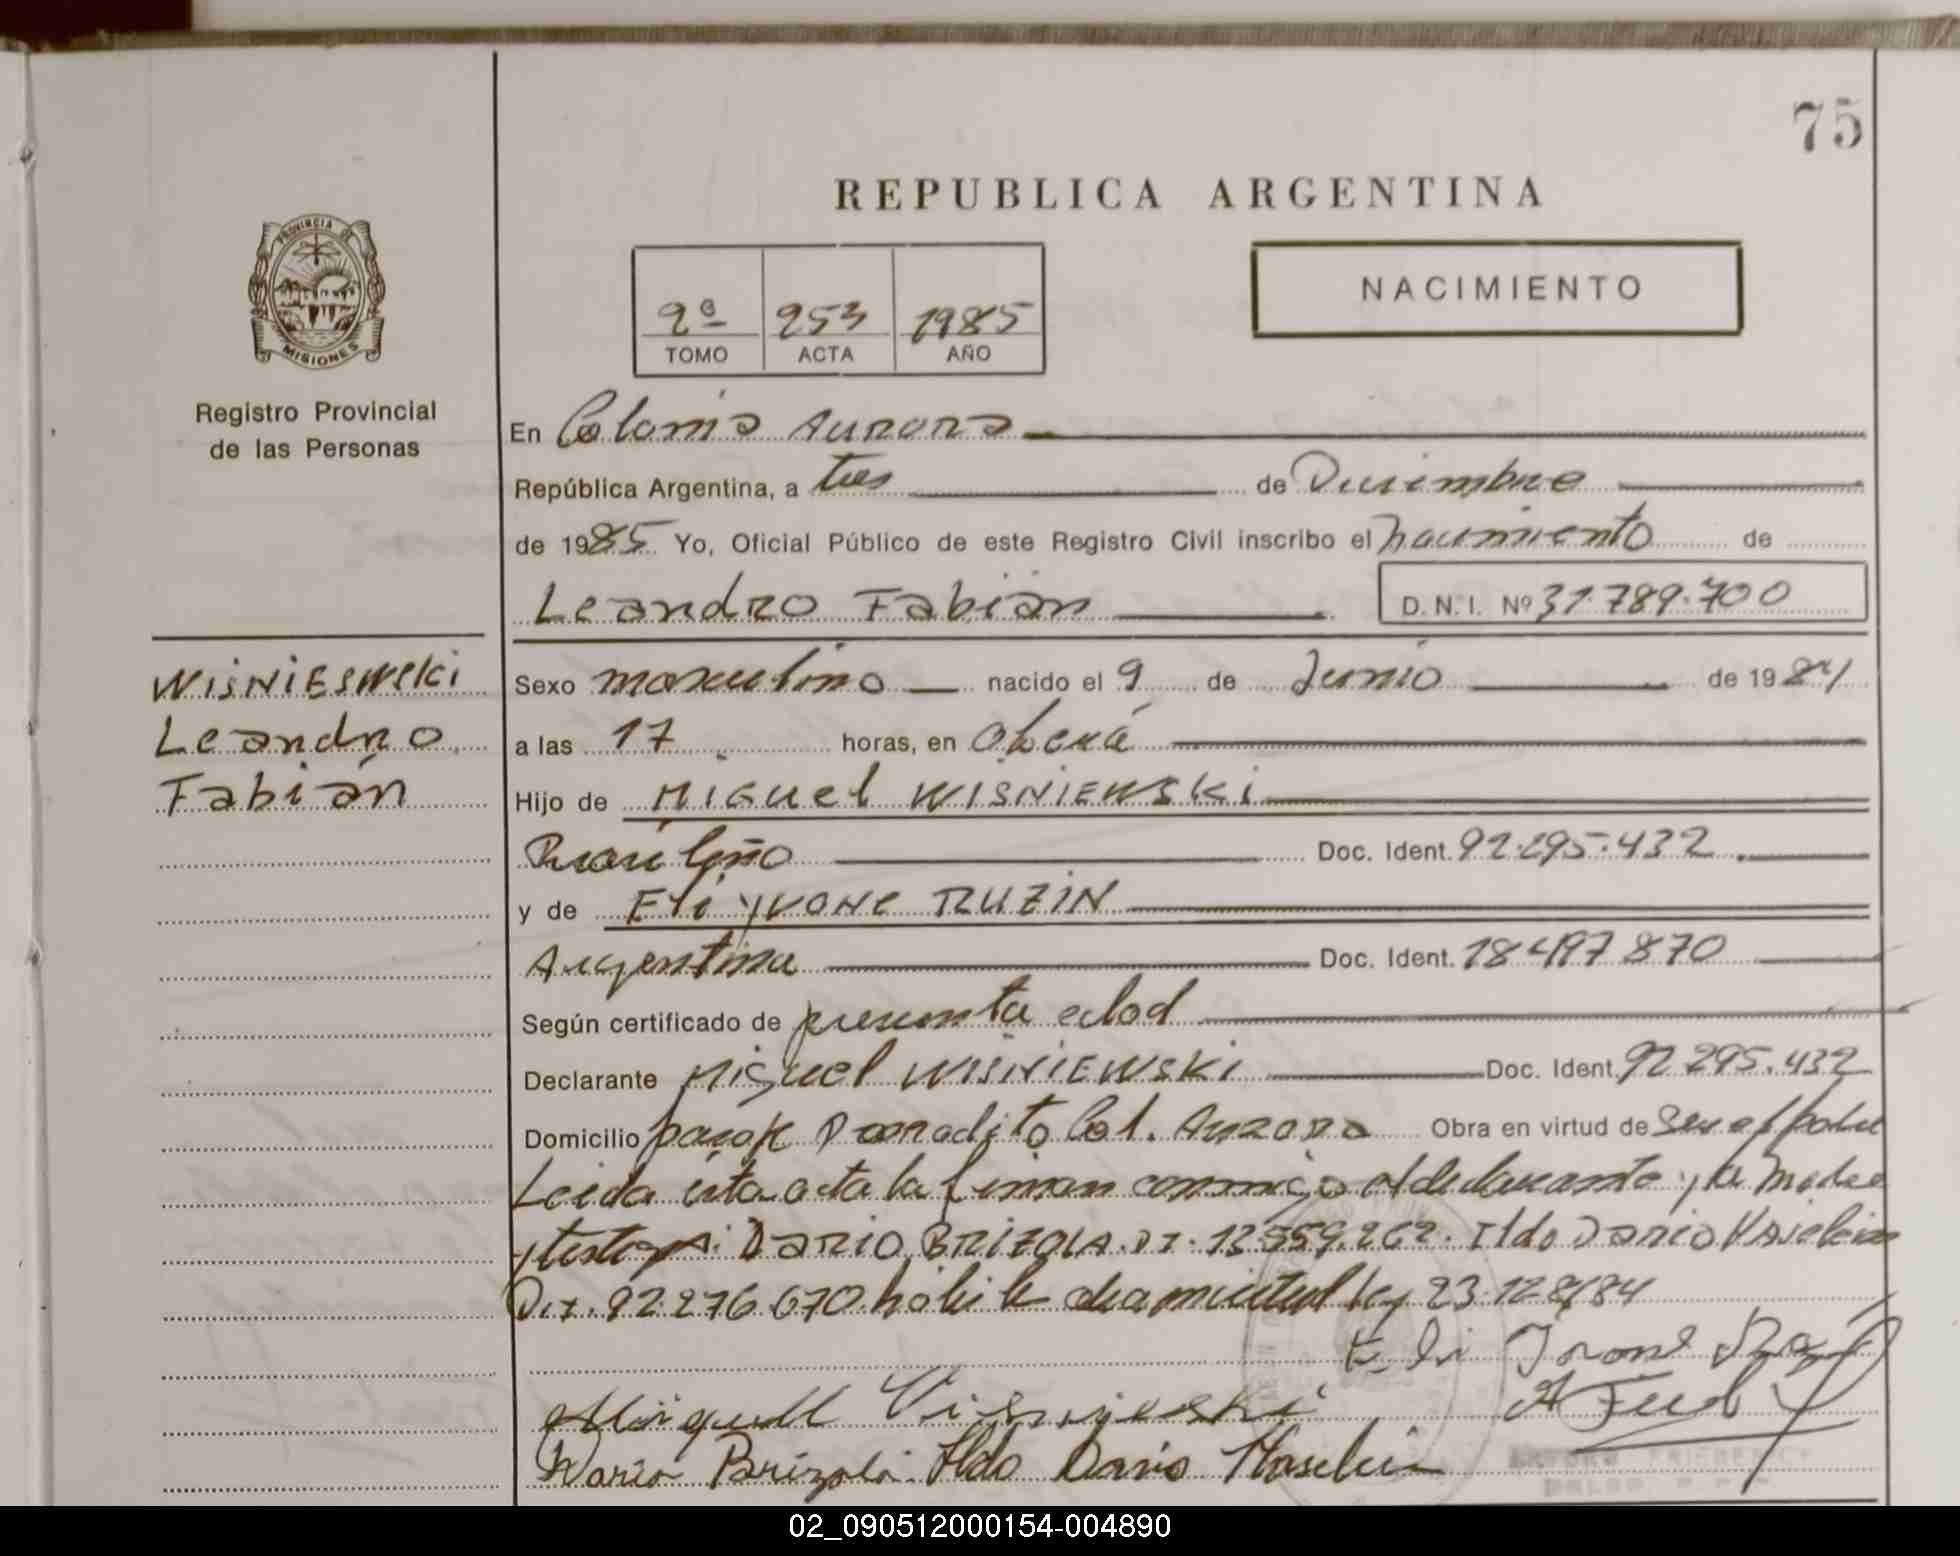 75
REPUBLICA ARGENTINA
PROVINCIA DE
MISIONES
Registro Provincial
de las Personas
NACIMIENTO
2º 253 1985
TOMO ACTA AÑO
En Colonia Aurora
República Argentina, a tres de Diciembre
de 1985 Yo, Oficial Público de este Registro Civil inscribo el nacimiento de
Leandro Fabián D.N.I. Nº 31.789.700
WISNIEWSKI
Leandro
Fabián
Sexo masculino nacido el 9 de Junio de 1984
a las 17 horas, en Oberá
Hijo de Miguel WISNIEWSKI
Brasileño Doc. Ident. 92.295.432
y de Eli YVONE RUZIN
Argentina Doc. Ident. 18 497 870
Según certificado de presunta edad
Declarante Miguel WISNIEWSKI Doc. Ident. 92 295.432
Domicilio Col. Aurora Obra en virtud de ser el padre
Leida esta acta la firman conmigo el declarante y la madre
y testigos: DARIO BRIZOLA. DI. 13 559.262. Ildo Dario
D.I. 92.276.670 ley 23.128/84
Eli
Miguel
Dario Brizola Ildo Dario
02_090512000154-004890